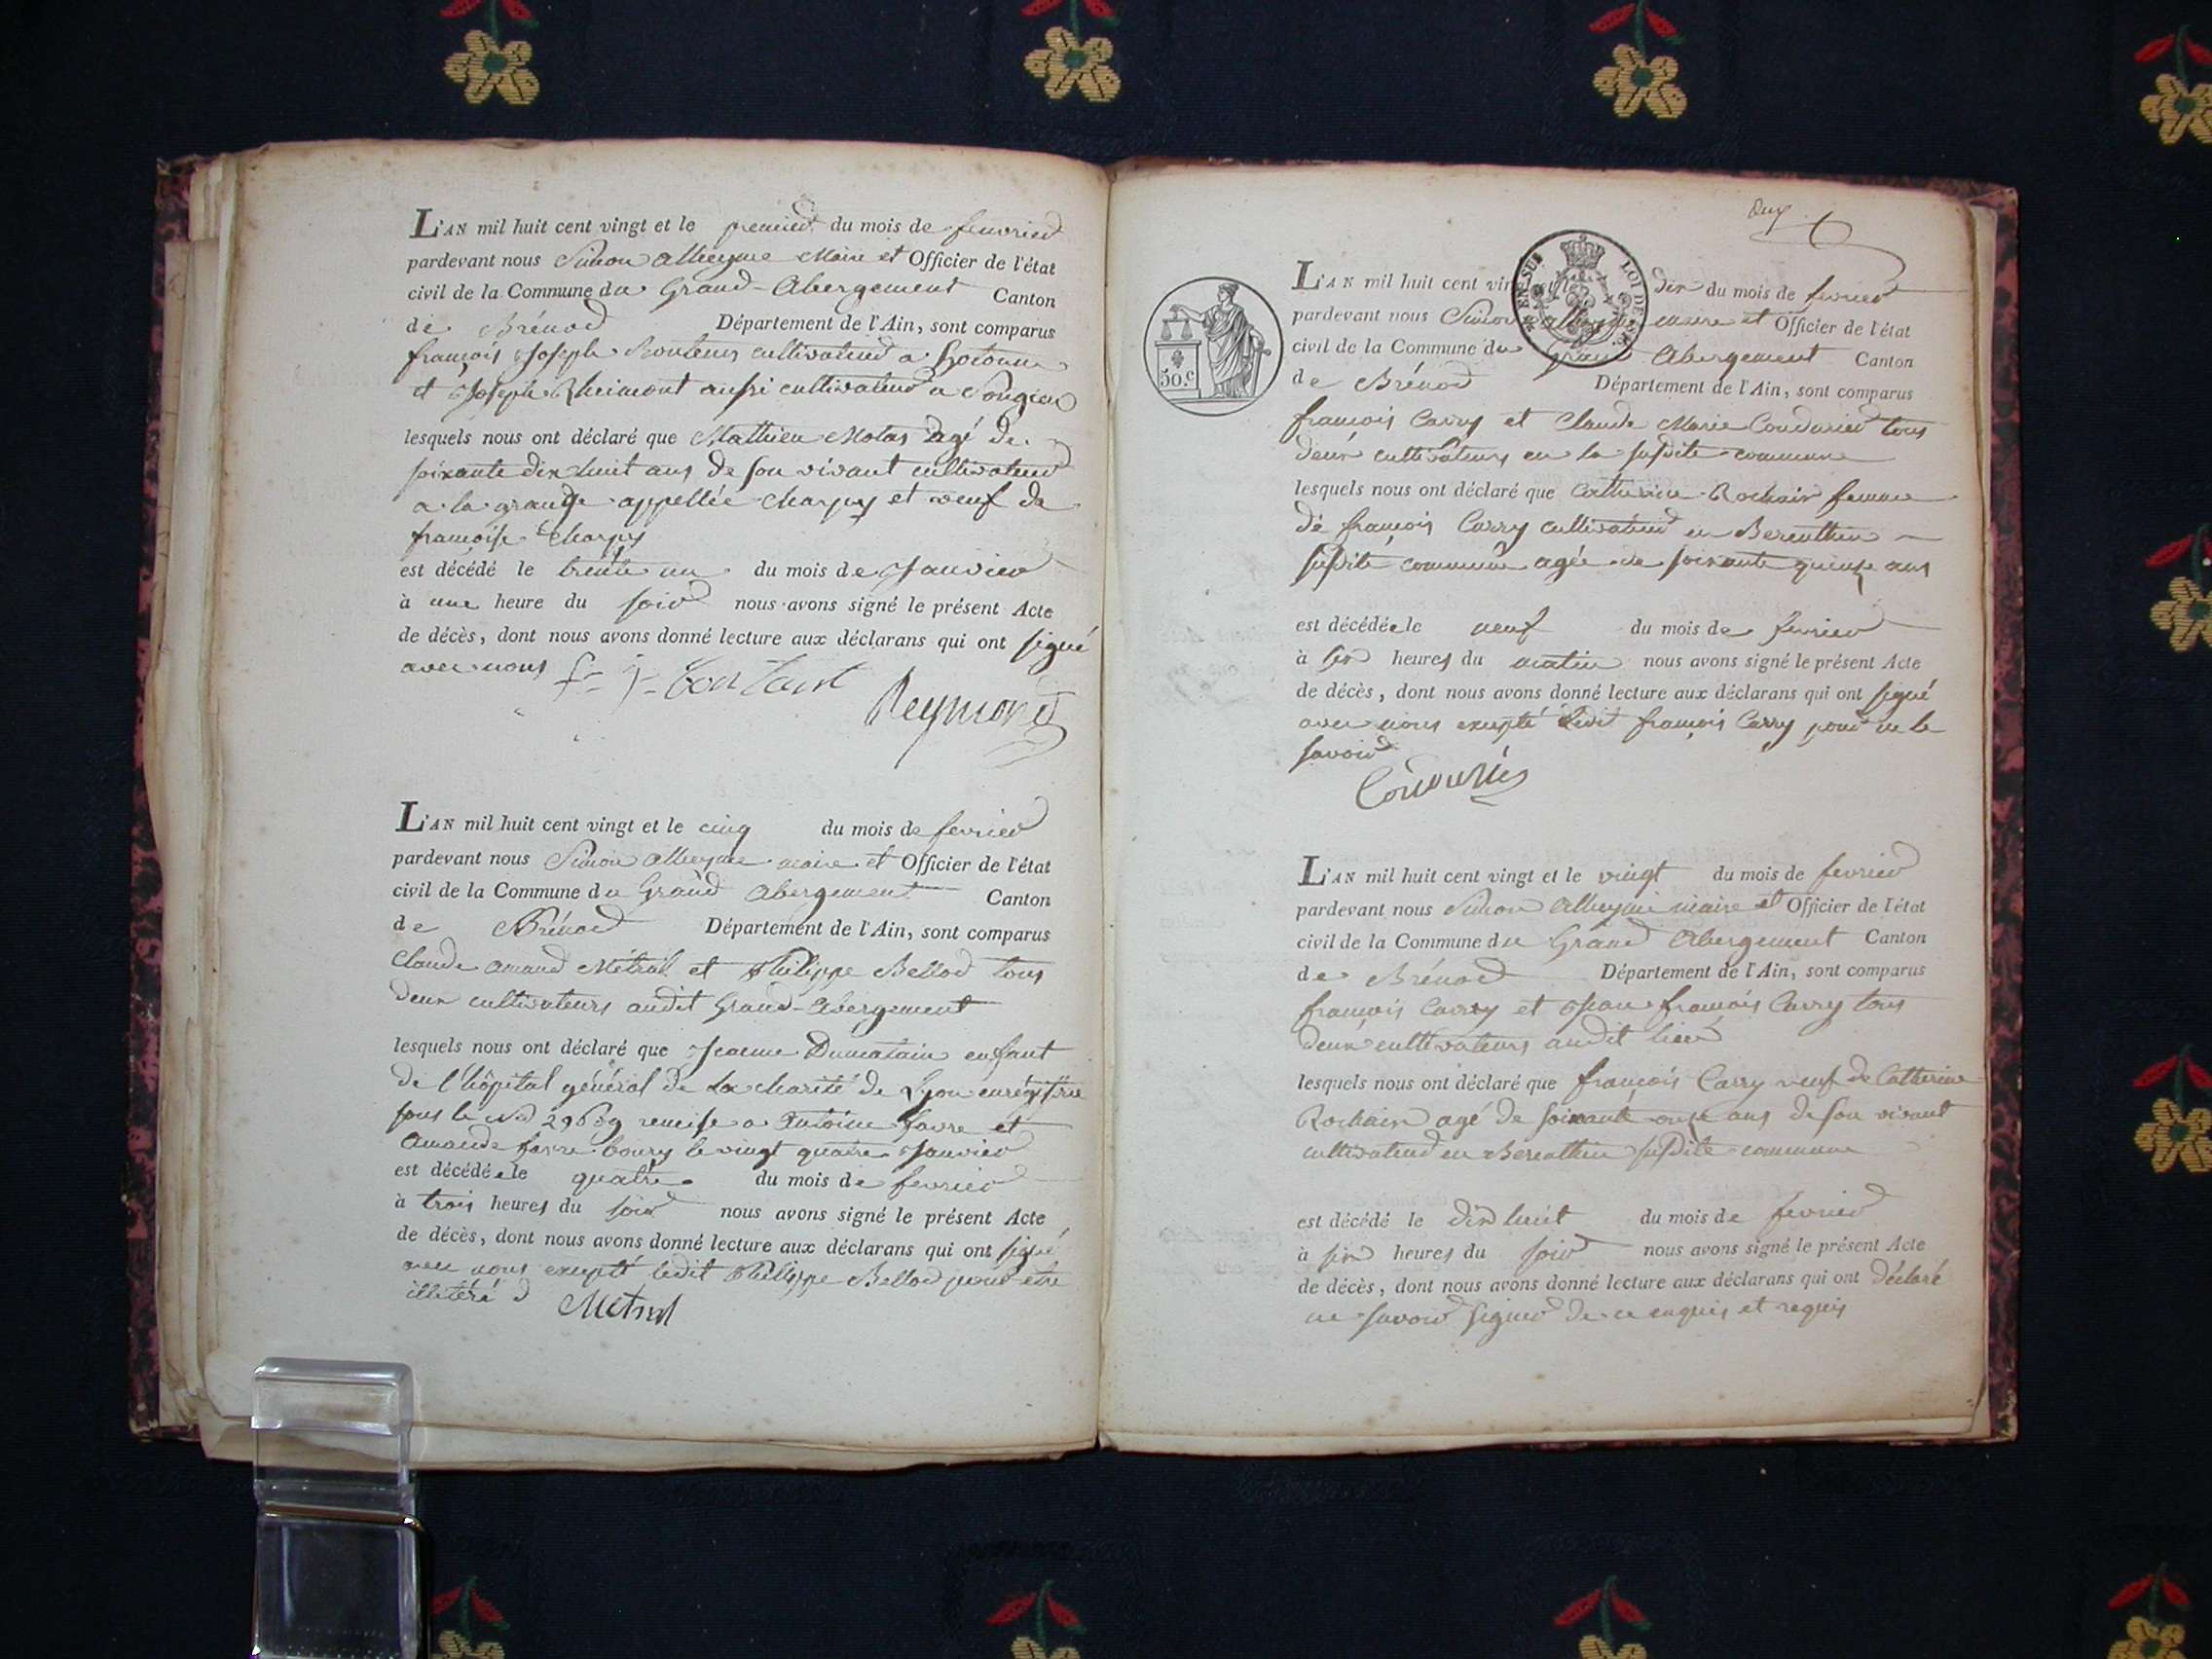 L'AN mil huit cent vingt et le premier du mois de fevrier
pardevant nous Simon Alleyme Maire et Officier de l'état
civil de la Commune du Grand-Abergement Canton
de Brénod Département de l'Ain, sont comparus
françois Joseph cultivateur a hotonne
et Joseph aussi cultivateur a Songieu
lesquels nous ont déclaré que Mathieu Motas agé de
soixante dix huit ans de son vivant cultivateur
a la grange appellée charpy et veuf de
françoise charpy
est décédé le trente un du mois de Janvier
à une heure du soir nous avons signé le présent Acte
de décès, dont nous avons donné lecture aux déclarans qui ont signé
avec nous
Reymond
L'AN mil huit cent vingt et le cinq du mois de fevrier
pardevant nous Simon Alleyme maire et Officier de l'état
civil de la Commune du Grand Abergement Canton
de Brénod Département de l'Ain, sont comparus
Claude amand Métral et Philippe Bellod tous
deux cultivateurs audit Grand-Abergement
lesquels nous ont déclaré que Jeanne Dumatain enfant
de l'hôpital général de la charité de Lyon enrégistrée
sous le No 29639 remise a Antoine favre et
Amande favre boury le vingt quatre Janvier
est décédée le quatre du mois de fevrier
à trois heures du soir nous avons signé le présent Acte
de décès, dont nous avons donné lecture aux déclarans qui ont signé
avec nous excepté ledit Philippe Bellod pour etre
illitéré
Metral
EN SUS LOI DE
50.C
L'AN mil huit cent vingt et le dix du mois de fevrier
pardevant nous Simon Alleyme maire et Officier de l'état
civil de la Commune du Grand Abergement Canton
de Brénod Département de l'Ain, sont comparus
françois Carry et Claude Marie Condurier tous
deux cultivateurs en la susdite commune
lesquels nous ont déclaré que Catherine Rochaix femme
de françois Carry cultivateur en Berenthin
susdite commune agée de soixante quinze ans
est décédée le neuf du mois de fevrier
à six heures du matin nous avons signé le présent Acte
de décès, dont nous avons donné lecture aux déclarans qui ont signé
avec nous excepté ledit françois Carry pour ne le
savoir
L'AN mil huit cent vingt et le vingt du mois de fevrier
pardevant nous Simon Alleyme maire et Officier de l'état
civil de la Commune du Grand Abergement Canton
de Brénod Département de l'Ain, sont comparus
françois Carry et Jean françois Carry tous
deux cultivateurs audit lieu
lesquels nous ont déclaré que françois Carry veuf de Catherine
Rochaix agé de soixante onze ans de son vivant
cultivateur en Berenthin susdite commune
est décédé le dix huit du mois de fevrier
à six heures du soir nous avons signé le présent Acte
de décès, dont nous avons donné lecture aux déclarans qui ont déclaré
ne savoir signer de ce enquis et requis